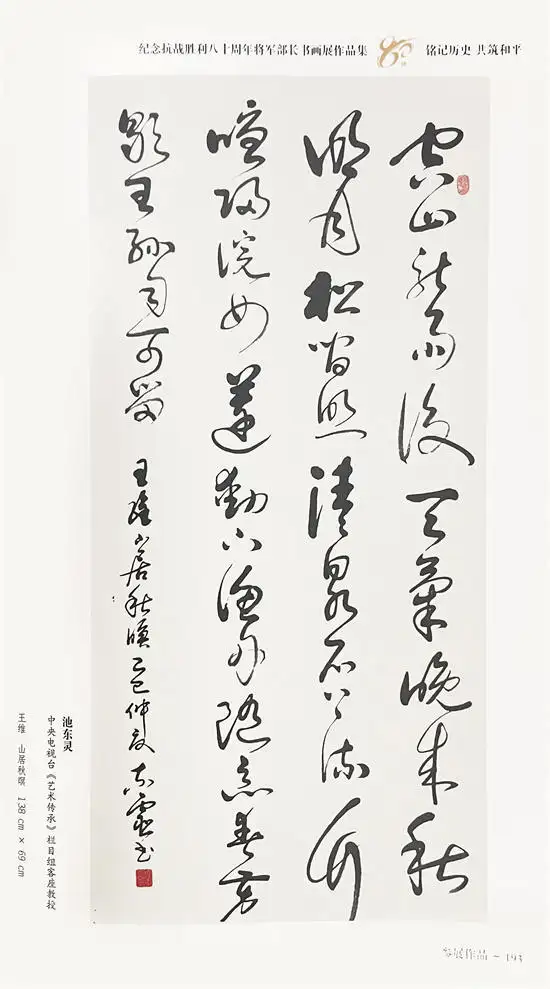 纪念抗战胜利八十周年将军部长书画展作品集 80 铭记历史 共筑和平
空山新雨後天氣晚来秋
明月松間照清泉石上流竹
喧歸浣女蓮動下漁舟随意春芳
歇王孫自可留 王維山居秋暝 乙巳仲夏 东靈书
池东灵
中央电视台《艺术传承》栏目组客座教授
王维 山居秋暝 138 cm × 69 cm
参展作品 - 193